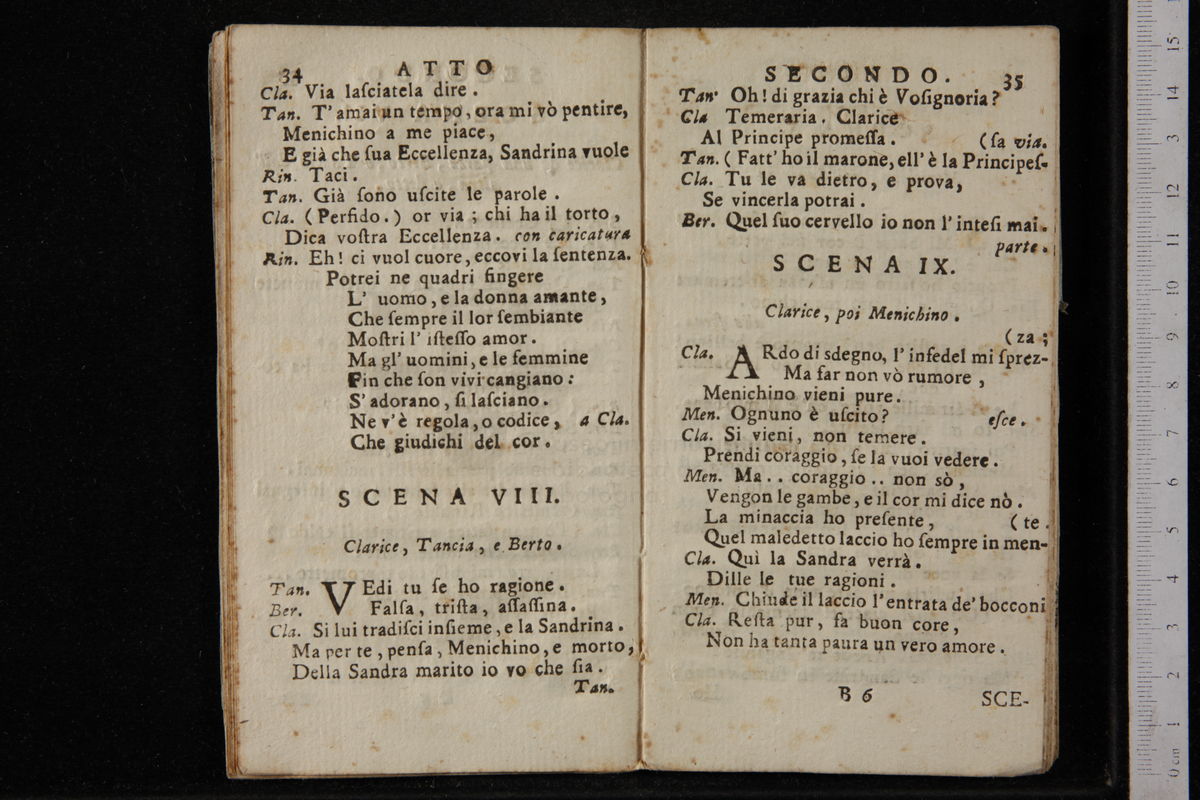 34 ATTO
Cla. Via laſciatela dire.
Tan. T' amai un tempo, ora mi vò pentire,
Menichino a me piace,
E già che ſua Eccellenza, Sandrina vuole
Rin. Taci.
Tan. Già ſono uſcite le parole.
Cla. (Perfido.) or via; chi ha il torto,
Dica voſtra Eccellenza. con caricatura
Rin. Eh! ci vuol cuore, eccovi la ſentenza.
Potrei ne quadri fingere
L' uomo, e la donna amante,
Che ſempre il lor ſembiante
Moſtri l' iſteſſo amor.
Ma gl' uomini, e le femmine
Fin che ſon vivi cangiano:
S' adorano, ſi laſciano.
Ne v'è regola, o codice, a Cla.
Che giudichi del cor.
SCENA VIII.
Clarice, Tancia, e Berto.
Tan. VEdi tu ſe ho ragione.
Ber. Falſa, triſta, aſſaſſina.
Cla. Si lui tradiſci inſieme, e la Sandrina.
Ma per te, penſa, Menichino, e morto,
Della Sandra marito io vo che ſia.
Tan.
SECONDO. 35
Tan. Oh! di grazia chi è Voſignoria?
Cla Temeraria. Clarice
Al Principe promeſſa. (ſa via.
Tan. (Fatt' ho il marone, ell' è la Principeſ-
Cla. Tu le va dietro, e prova,
Se vincerla potrai.
Ber. Quel ſuo cervello io non l' inteſi mai.
parte.
SCENA IX.
Clarice, poi Menichino.
(za;
Cla. ARdo di sdegno, l' infedel mi ſprez-
Ma far non vò rumore,
Menichino vieni pure.
Men. Ognuno è uſcito? eſce.
Cla. Si vieni, non temere.
Prendi coraggio, ſe la vuoi vedere.
Men. Ma.. coraggio.. non sò,
Vengon le gambe, e il cor mi dice nò.
La minaccia ho preſente, (te.
Quel maledetto laccio ho ſempre in men-
Cla. Quì la Sandra verrà.
Dille le tue ragioni.
Men. Chiude il laccio l'entrata de' bocconi
Cla. Reſta pur, fa buon core,
Non ha tanta paura un vero amore.
B 6 SCE-
0 cm 1 2 3 4 5 6 7 8 9 10 11 12 13 14 15